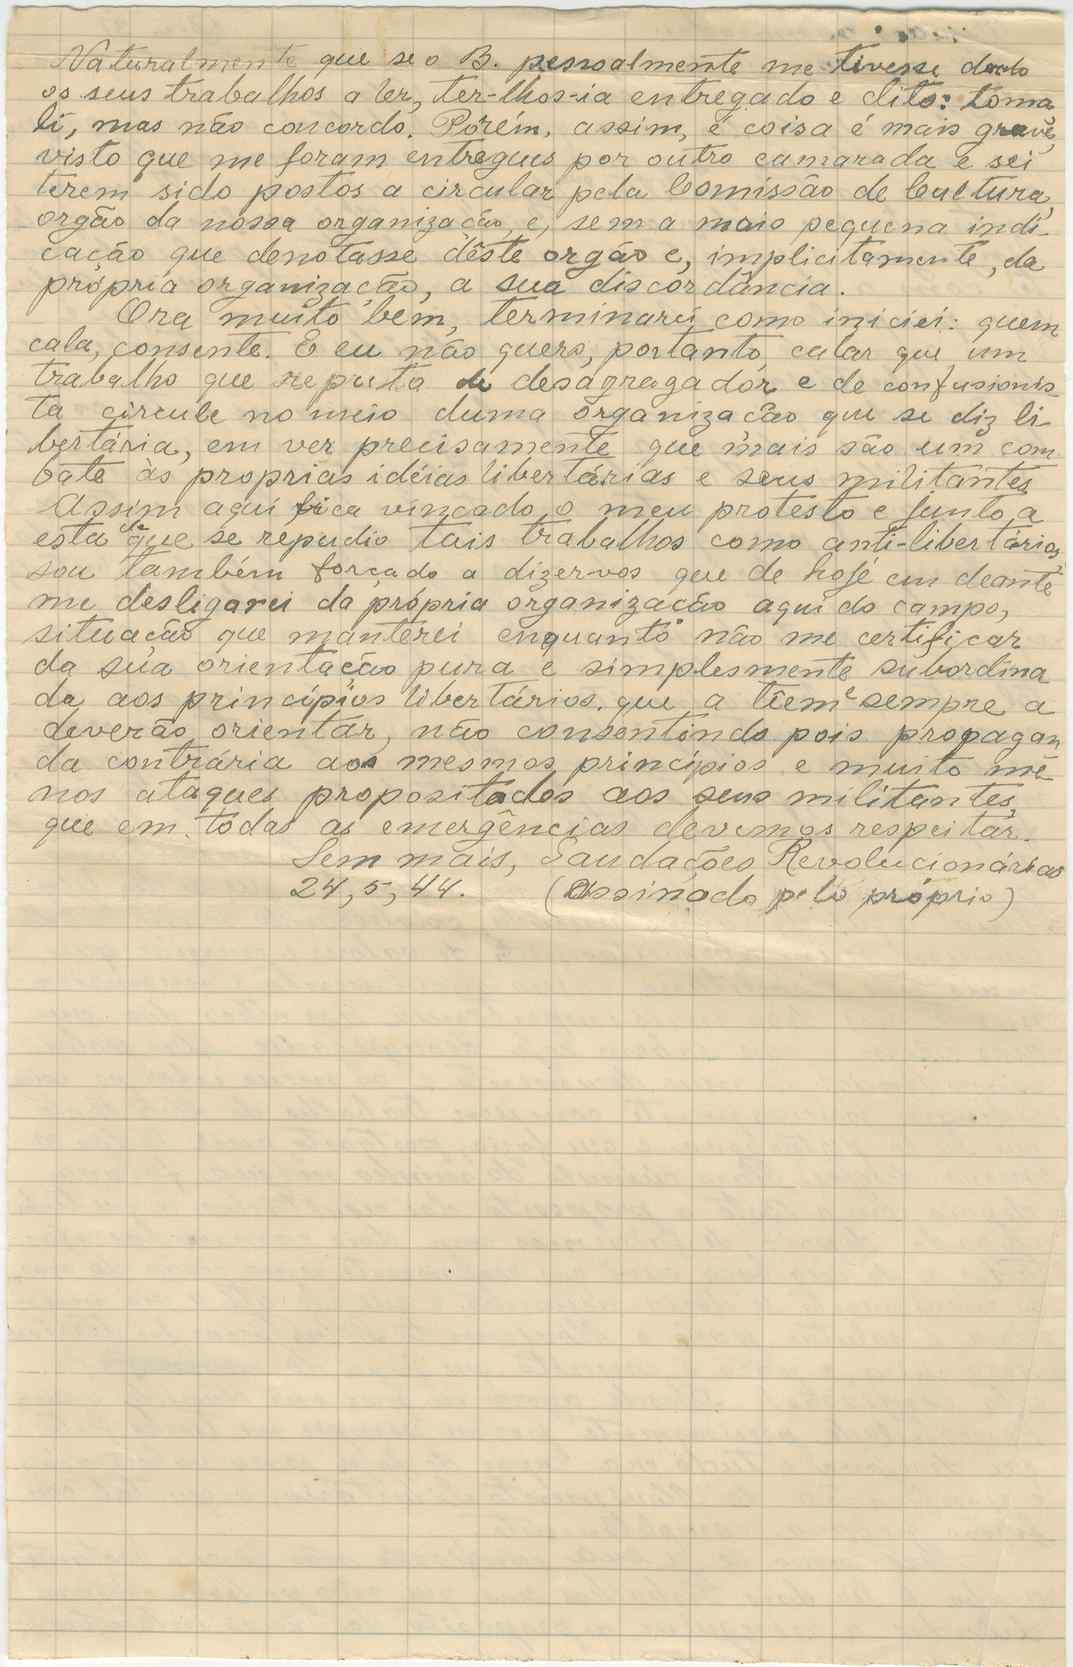 Naturalmente que se o B. pessoalmente me tivesse dado
os seus trabalhos a ler, ter-lhos-ia entregado e dito: toma
lí, mas não concordo. Pórém, assim, e coisa é mais grave,
visto que me foram entregues por outro camarada e sei
terem sido postos a circular pela Comissão de Cultura,
orgão da nossa organização, e, sem a maio pequena indi-
cação que denotasse dêste orgão e, implicitamente, da
própria organização, a sua discordância.
Ora muito bem, terminarei como iniciei: quem
cala, consente. E eu não quero, portanto, calar que um
trabalho que reputo de desagregador e de confusionis-
ta circule no meio duma organização que se diz li-
bertária, em ver precisamente que mais são um com-
bate às proprias idéias libertárias e seus militantes.
Assim aqui fica vincado o meu protesto e junto a
esta de que se repudio tais trabalhos como anti-libertários,
sou também forçado a dizer-vos que de hoje em deante
me desligarei da própria organização aqui do campo,
situação que manterei enquanto não me certificar
da sua orientação pura e simplesmente subordina
da aos princípios libertários que a têem e sempre a
deverão orientar, não consentindo pois propagan
da contrária aos mesmos princípios e muito me-
nos ataques propositados aos seus militantes,
que em todas as emergências devemos respeitar.
Sem mais, Saudações Revolucionárias
24, 5, 44. (Assinado pelo próprio)